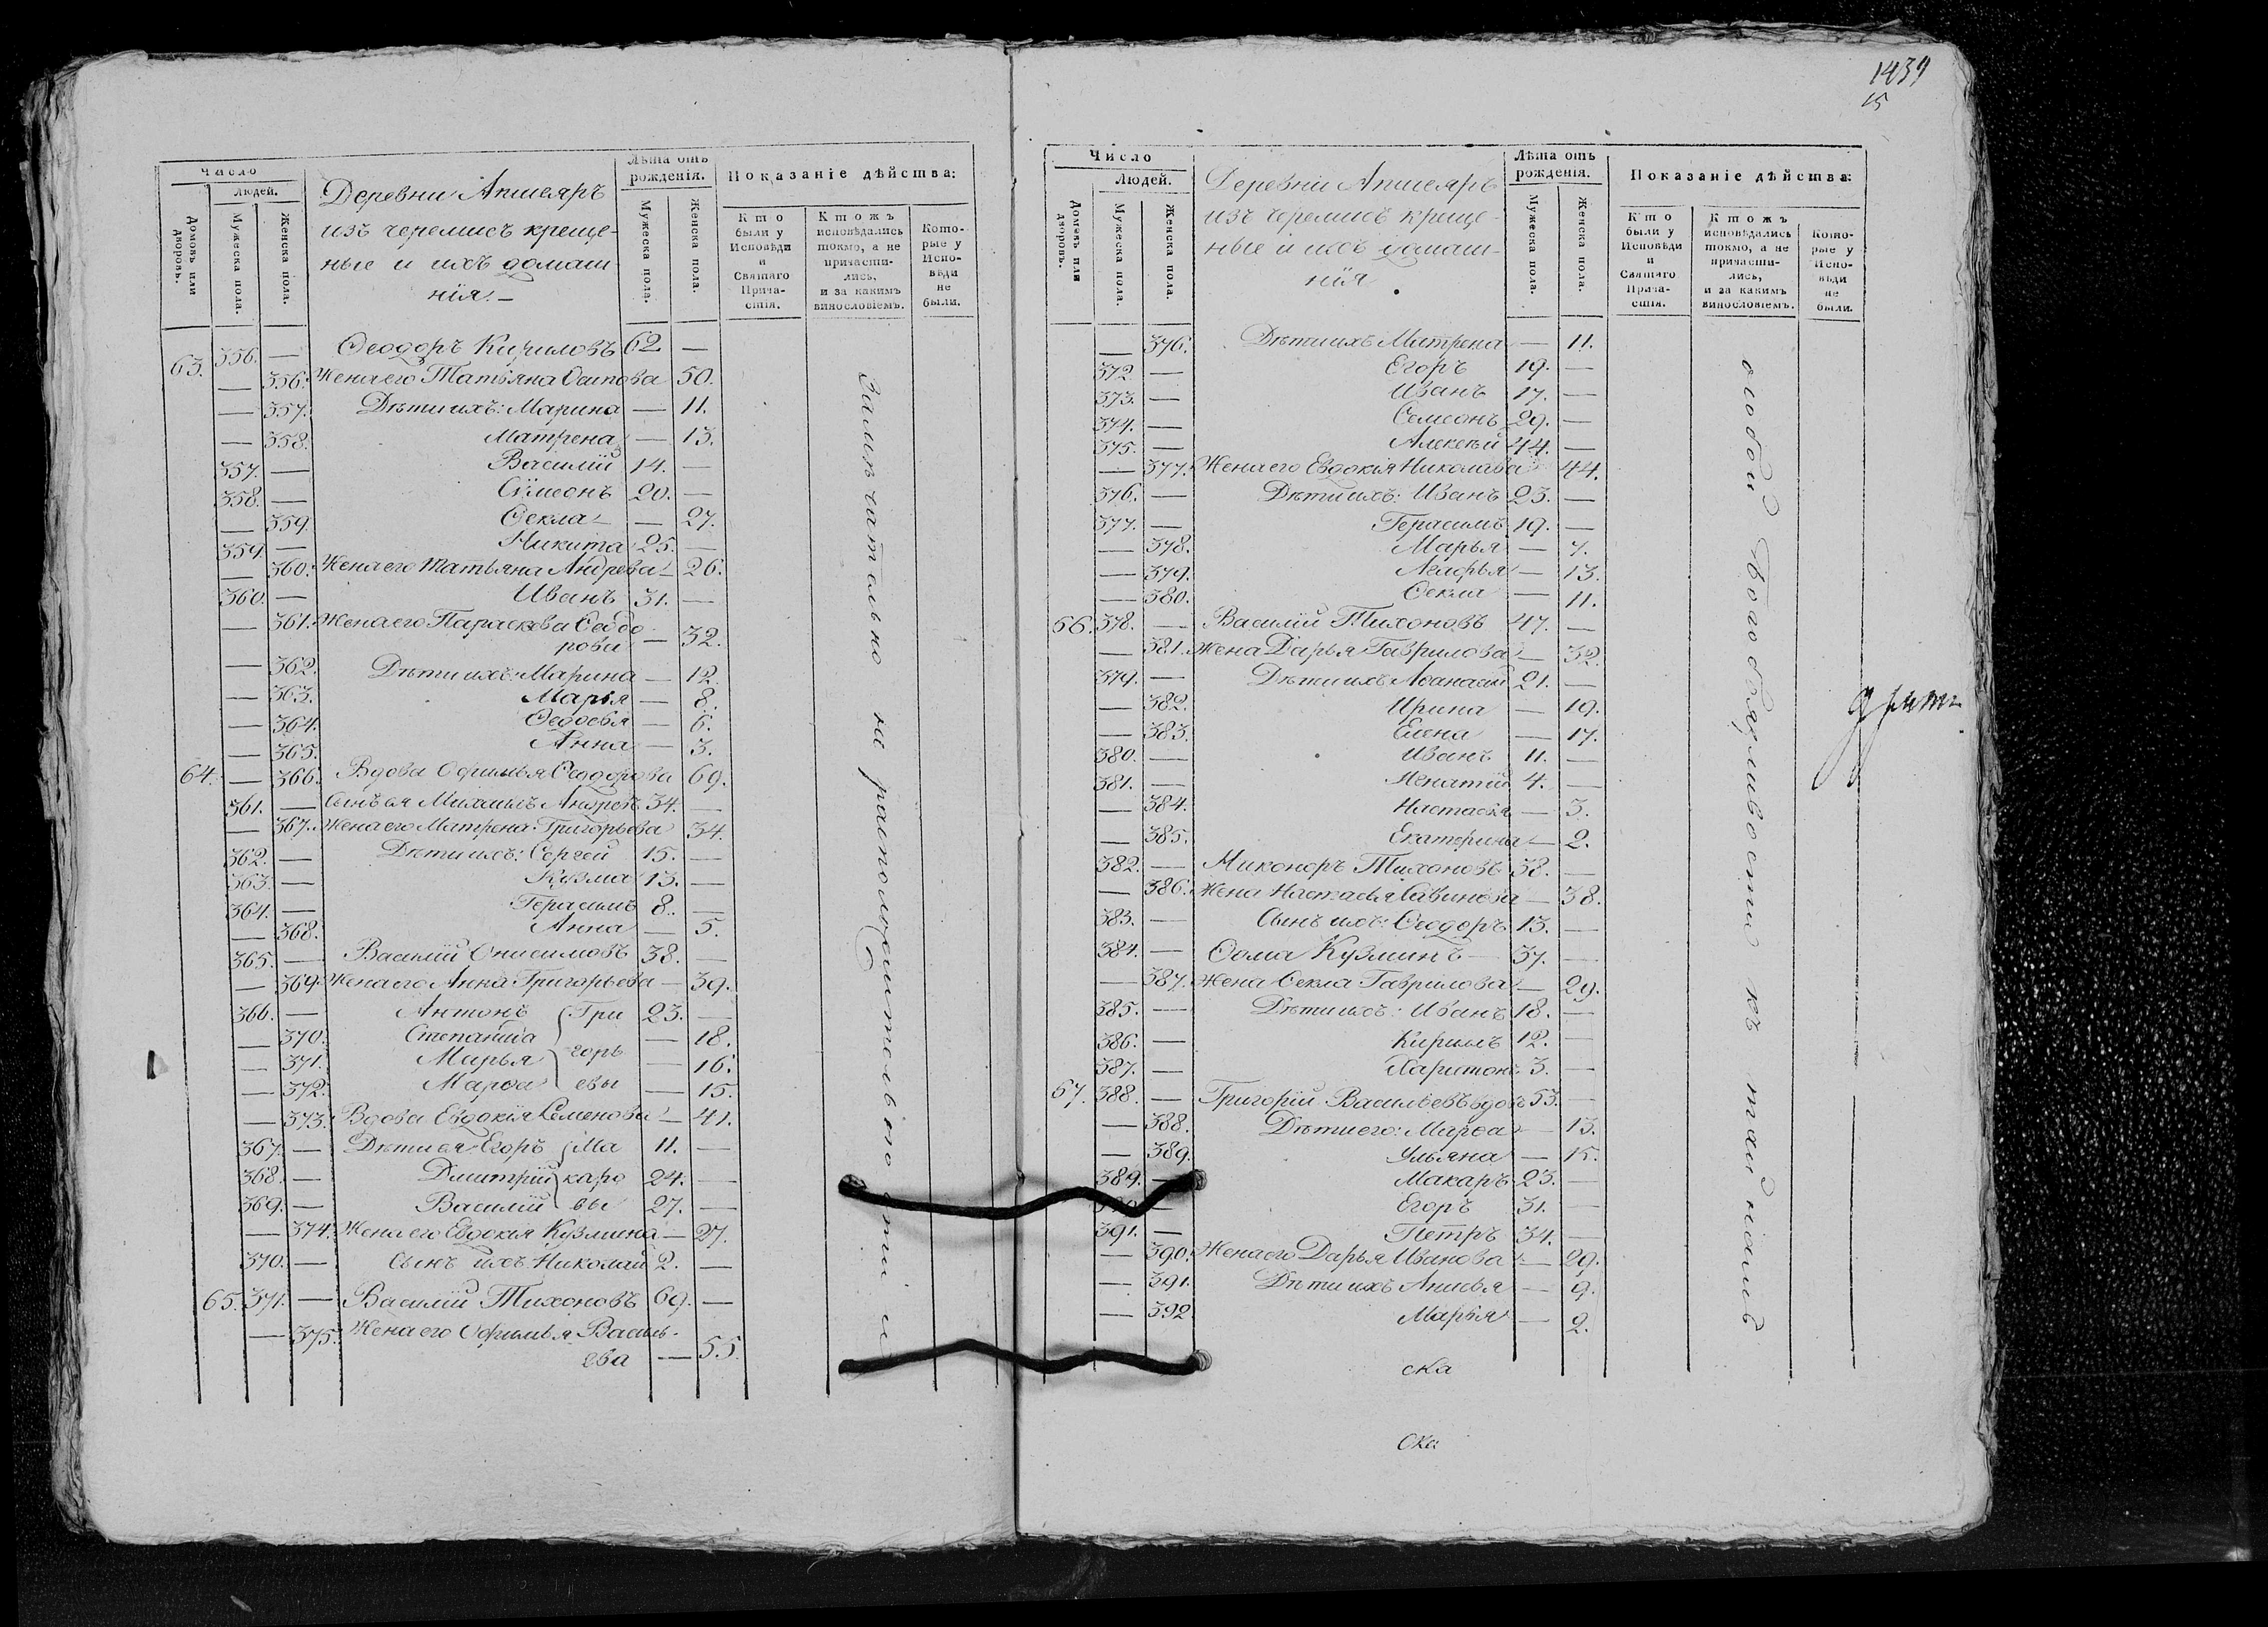 Число
Людей.
Домовъ или дворовъ.
Мужеска пола.
Женска пола.
Деревни Апшеяръ
изъ черемисъ креще-
ные и ихъ домаш
нія.-
Лѣта отъ
рожденія.
Мужеска пола.
Женска пола.
Показаніе дѣйства:
Кто были у Исповѣди и Святаго Прича-стія.
Ктожъ исповѣдались токмо, а не причасти-лись, и за какимъ винословіемъ.
Кото-рые у Испо-вѣди не были.
63. 356. — Ѳеодоръ Кириловъ 62 —
— 356. Жена его Татьяна Осипова 50.
— 357. Дѣти ихъ: Марина — 11.
— 358. Матрена — 13.
357. — Василій 14. —
358. — Сѵмеонъ 20. —
— 359. Ѳекла — 27.
359. — Никита 25. —
— 360. Жена его Татьяна Андрева — 26.
360. — Иванъ 31. —
— 361. Жена его Параскева Ѳеодо
рова — 32.
— 362. Дѣти ихъ: Марина — 12.
— 363. Марья — 8.
— 364. Ѳедосья — 6.
— 365. Анна — 3.
64. — 366. Вдова Офимья Ѳеодорова 69.
361. — Сынъ ея Михаилъ Андреевъ 34. —
— 367. Жена его Матрена Григорьева 34.
362. — Дѣти ихъ: Сергей 15. —
363. — Кузма 13. —
364. — Герасимъ 8. —
— 368. Анна — 5.
365. — Василій Онисимовъ 38. —
— 369. Жена его Анна Григорьева — 39.
366. — Антонъ Гри 23. —
— 370. Степанида — 18.
— 371. Марья горь — 16.
— 372. Марѳа евы — 15.
— 373. Вдова Евдокія Семенова — 41.
367. — Дѣти ея Егоръ Ма 11. —
368. — Дмитрій каро 24. —
369. — Василій вы 27. —
— 374. Жена его Евдокія Кузмина — 27.
370. — Сынъ ихъ Николай 2. —
65. 371. — Василій Тихоновъ 69. —
— 375. Жена его Офимья Василь-
ева — 55.
Замѣчательно не расположительностію
1439
15
Число
Людей.
Домовъ или дворовъ.
Мужеска пола.
Женска пола.
Деревни Апшеяръ
изъ черемисъ креще-
ные и ихъ домаш-
нія
Лѣта отъ
рожденія.
Мужеска пола.
Женска пола.
Показаніе дѣйства:
Кто были у Исповѣди и Святаго Прича-стія.
Ктожъ исповѣдались токмо, а не причасти-лись, и за какимъ винословіемъ.
Кото-рые у Испо-вѣди не были.
— 376. Дѣти ихъ Матрена — 11.
372 — Егоръ 19. —
373. — Иванъ 17. —
374. — Семеонъ 29. —
375. — Алексѣй 44. —
— 377. Жена его Евдокія Николаева 44.
376. — Дѣти ихъ: Иванъ 23. —
377. — Герасимъ 19. —
— 378. Марья — 7.
— 379. Агафья — 13.
— 380. Ѳекла — 11.
66. 378. — Василій Тихоновъ 47. —
— 381. Жена Дарья Гаврилова — 32.
379. — Дѣти ихъ Аѳанасій 21. —
— 382. Ирина — 19.
— 383. Елена — 17.
380. — Иванъ 11. —
381. — Игнатій 4. —
— 384. Настасья — 3.
— 385. Екатерина — 2.
382. — Миконоръ Тихоновъ 38. —
— 386. Жена Настасья Савинова — 38.
383. — Сынъ ихъ: Ѳеодоръ 13. —
384. — Ѳома Кузминъ — 37. —
— 387. Жена Ѳекла Гаврилова — 29.
385. — Дѣти ихъ: Иванъ 18. —
386. — Кирилъ 12. —
387. — Харитонъ 3. —
67. 388. — Григорій Васильевъ вдовъ 53. —
— 388. Дѣти его: Марѳа — 13.
— 389. Ульяна — 15.
389. — Макаръ 23. —
390. — Егоръ 31. —
391. — Петръ 34. —
— 390. Жена его Дарья Иванова — 29.
— 391. Дѣти ихъ Анисья — 9.
— 392. Марья — 2.
ска
ска